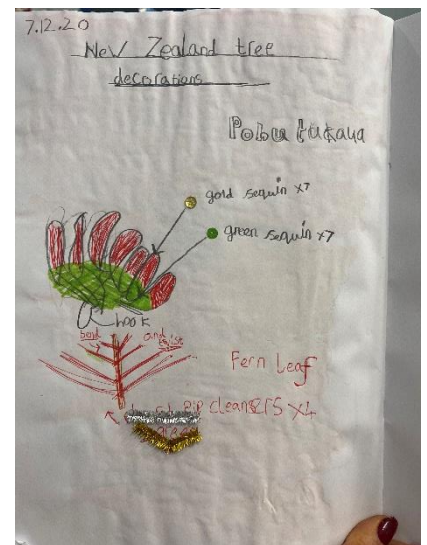 7.12.20
New Zealand tree
decorations
Pohutukaua
gold sequin x7
green sequin x7
hook
Fern Leaf
pip cleaners x4